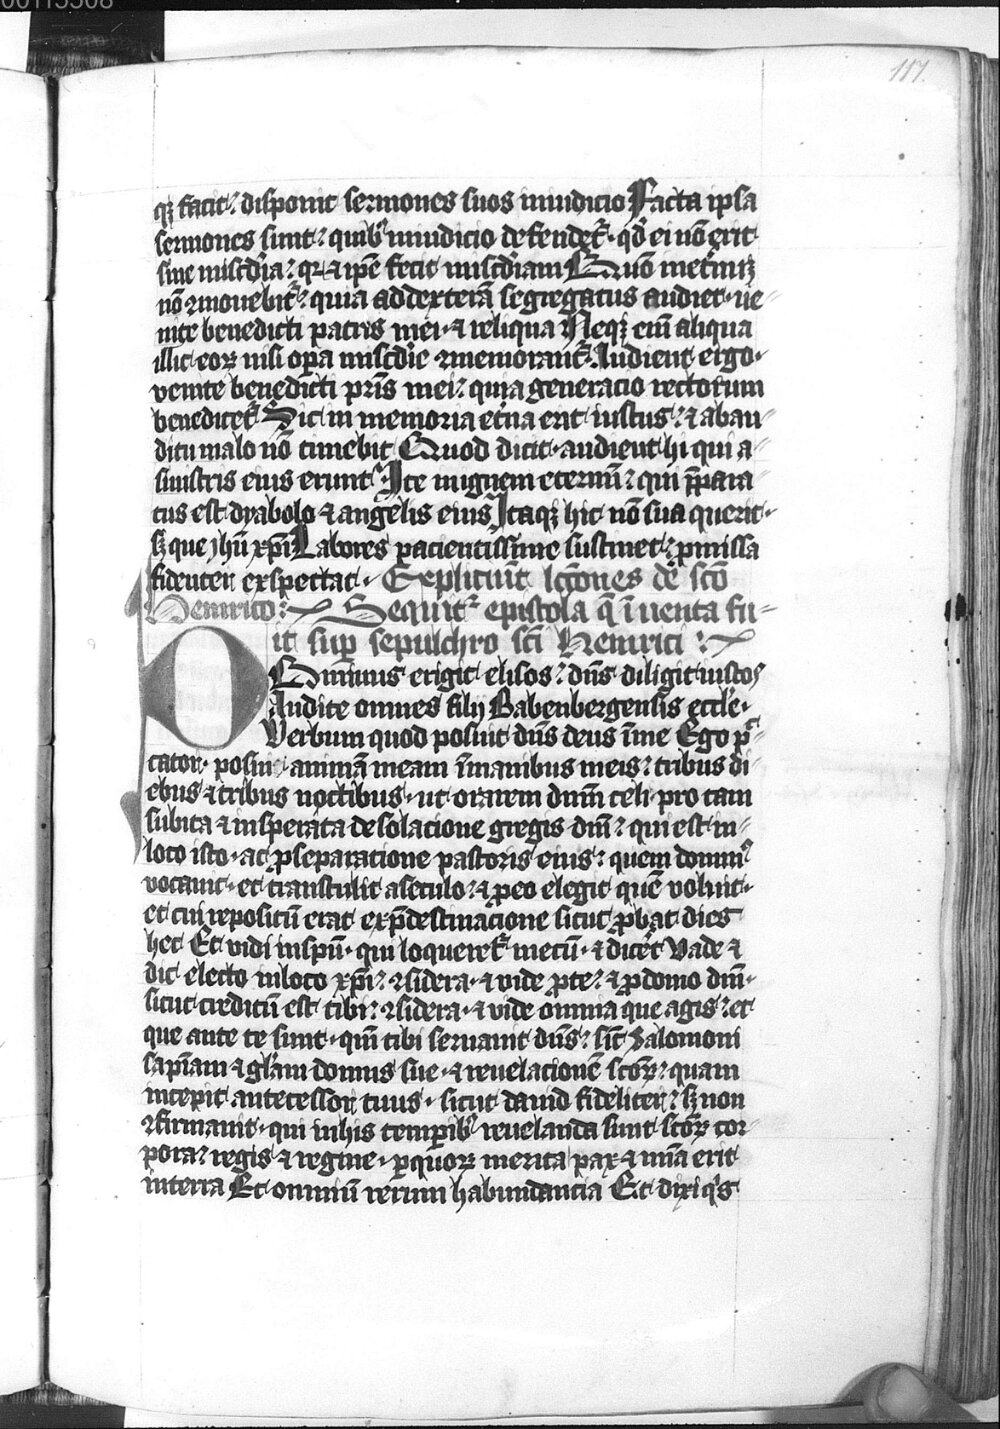 00115508
117.
qꝫ facit: disponit sermones suos iniudicio Facta ipsa
sermones sunt: quibꝰ iniudicio defendet᷑. qd̄ ei nō erit
sine misc̄dia: qꝛ & ip̄e fecit misc̄diam Quō
nō ꝯmouebit᷑: quia addexterā segregatus audiet. ue-
nite benedicti patris mei. & reliqua Neqꝫ eni aliqua
illic eoꝝ nisi op̄a misc̄die ꝯmemorant᷑. Audient ergo.
venite benedicti pr̄is mei: quia generacio rectorum
benedicet᷑ Sic in memoria et̄na erit iustus: & abau-
ditu malo nō timebit Quod dicit. audient hi qui a-
sinistris eius erunt: Ite inignem eternū: qui p̄para-
tus est dyabolo & angelis eius Itaqꝫ hic nō sua querit.
sꝫ que ihū xp̄i Labores pacientissime sustinet: ꝓmissa
fidenter exspectat. Expliciūt lc̄ones de sc̄o
Heinrico: Sequit᷑ epistola q̄ īuenta fu-
it sup̄ sepulchro sc̄i Heinrici:
Dominus erigit elisos: dn̄s diligit iustos
Audite omnes filij Babenbergensis eccl̄e.
Verbum quod posuit dn̄s deus īme Ego p̄-
cator. posui animā meam īmanibus meis: tribus di-
ebus & tribus noctibus. ut orarem dn̄m celi. pro tam
subita & insperata desolacione gregis dn̄i: qui est in-
loco isto. ac ꝓseparacione pastoris eius: quem dominꝰ
vocauit. et transtulit aseculo: & ꝓeo elegit quē voluit.
et cui repositū erat exp̄destinacione sicut ꝓbat dies
hec Et vidi insp̄u. qui loqueret᷑ mecū. & dicēt Vade &
dic electo inloco xp̄i: ꝯsidera. & vide ꝓte: & ꝓdomo dn̄i.
sicut creditū est tibi: ꝯsidera. & vide omnia que agis: et
que ante te sunt. qm̄ tibi seruauit dn̄s: sic̄ Salomoni
sapīam & gl̄iam domus sue. & reuelacionē sc̄oꝝ: quam
incepit antecessor tuus. sicut dauid fideliter: sꝫ non
ꝯfirmauit. qui inhis temporibꝰ reuelanda sunt sc̄oꝝ cor-
pora: regis & regine. ꝑquoꝝ merita pax & īnia erit
interra Et omniū rerum habundancia Et dixi qͥs